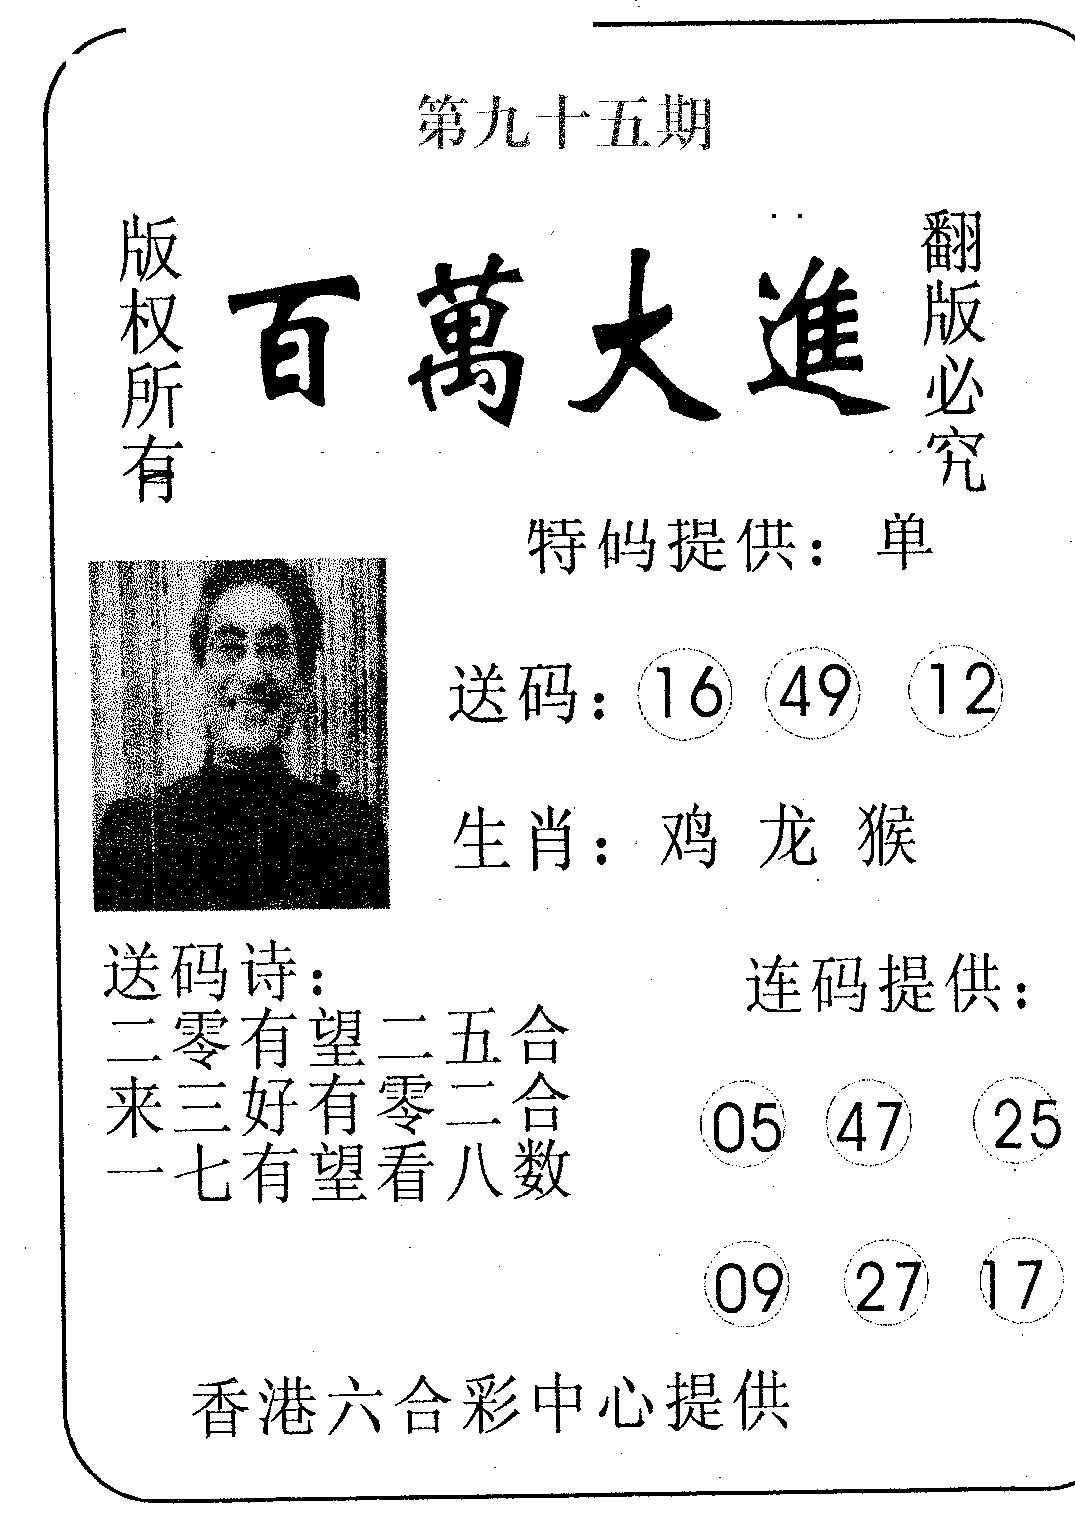 第九十五期
版权所有
百萬大進
翻版必究
特码提供：单
送码：16 49 12
生肖：鸡 龙 猴
送码诗：
二零有望二五合
来三好有零二合
一七有望看八数
连码提供：
05 47 25
09 27 17
香港六合彩中心提供